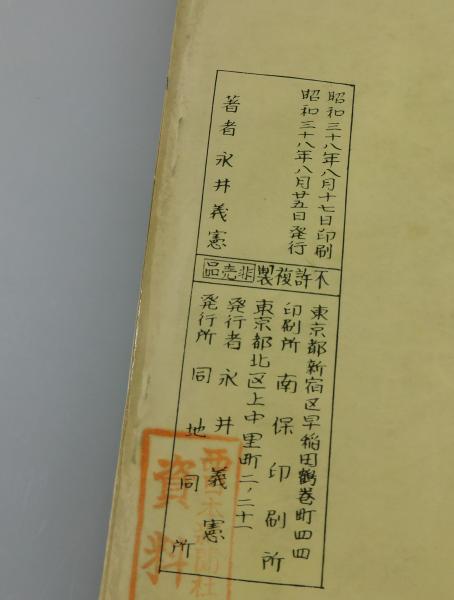 昭和三十八年八月十七日印刷
昭和三十八年八月廿五日発行
著者 永井義憲
不許複製 非売品
東京都新宿区早稲田鶴巻町四四
印刷所 南保印刷所
東京都北区上中里町二ノ二十一
発行者 永井義憲
発行所 同地同所
資料